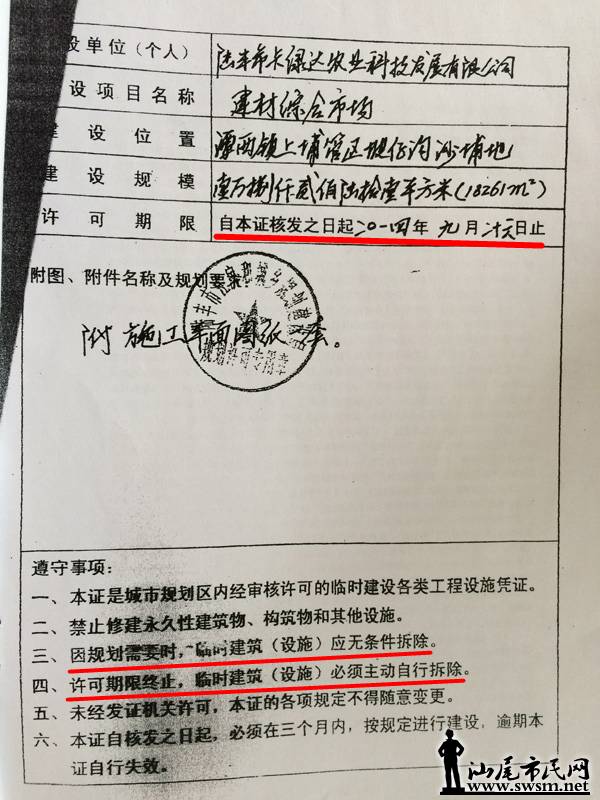 设单位(个人) 陆丰市卡绿达农业科技发展有限公司
设项目名称 建材综合市场
建设位置 潭西镇上埔管区 沙埔地
建设规模 壹万捌仟贰佰陆拾壹平方米(18261m²)
许可期限 自本证核发之日起二〇一四年九月二十六日止
附图、附件名称及规划要求
附施工平面图纸壹套。
遵守事项:
一、本证是城市规划区内经审核许可的临时建设各类工程设施凭证。
二、禁止修建永久性建筑物、构筑物和其他设施。
三、因规划需要时,临时建筑(设施)应无条件拆除。
四、许可期限终止,临时建筑(设施)必须主动自行拆除。
五、未经发证机关许可,本证的各项规定不得随意变更。
六、本证自核发之日起,必须在三个月内,按规定进行建设,逾期本
证自行失效。
汕尾市民网
www.swsm.net